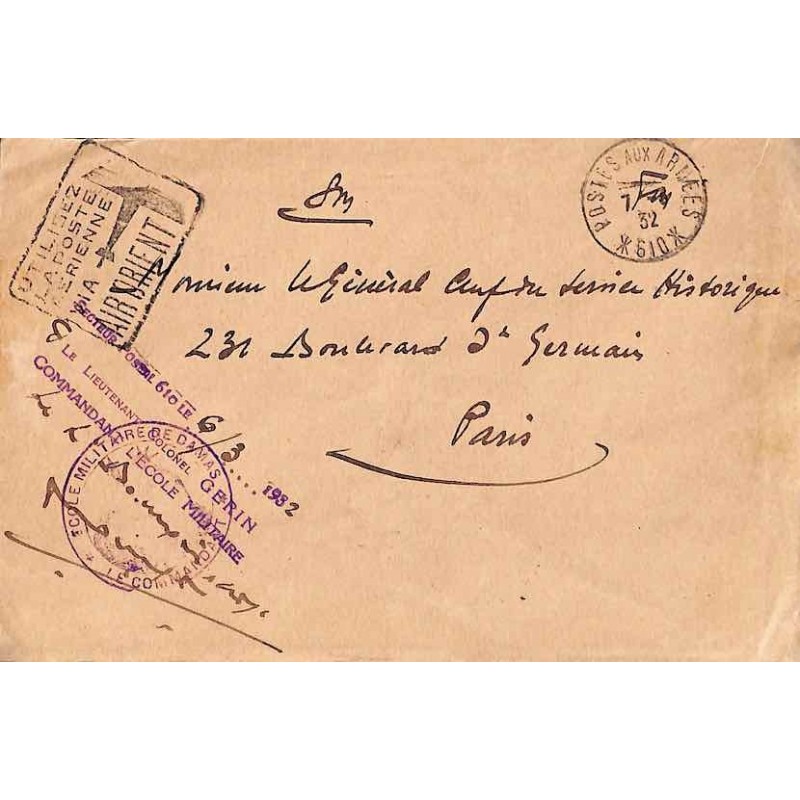 UTILISEZ
LA POSTE
AERIENNE
VIA
AIR ORIENT
POSTES AUX ARMEES
7
32
*610*
Monsieur le Général Chef du Service Historique
231 Boulevard St Germain
Paris
SECTEUR POSTAL 610 LE 6/3 1932
LE LIEUTENANT COLONEL GERIN
COMMANDANT L'ECOLE MILITAIRE
ECOLE MILITAIRE DE DAMAS
LE COMMANDANT